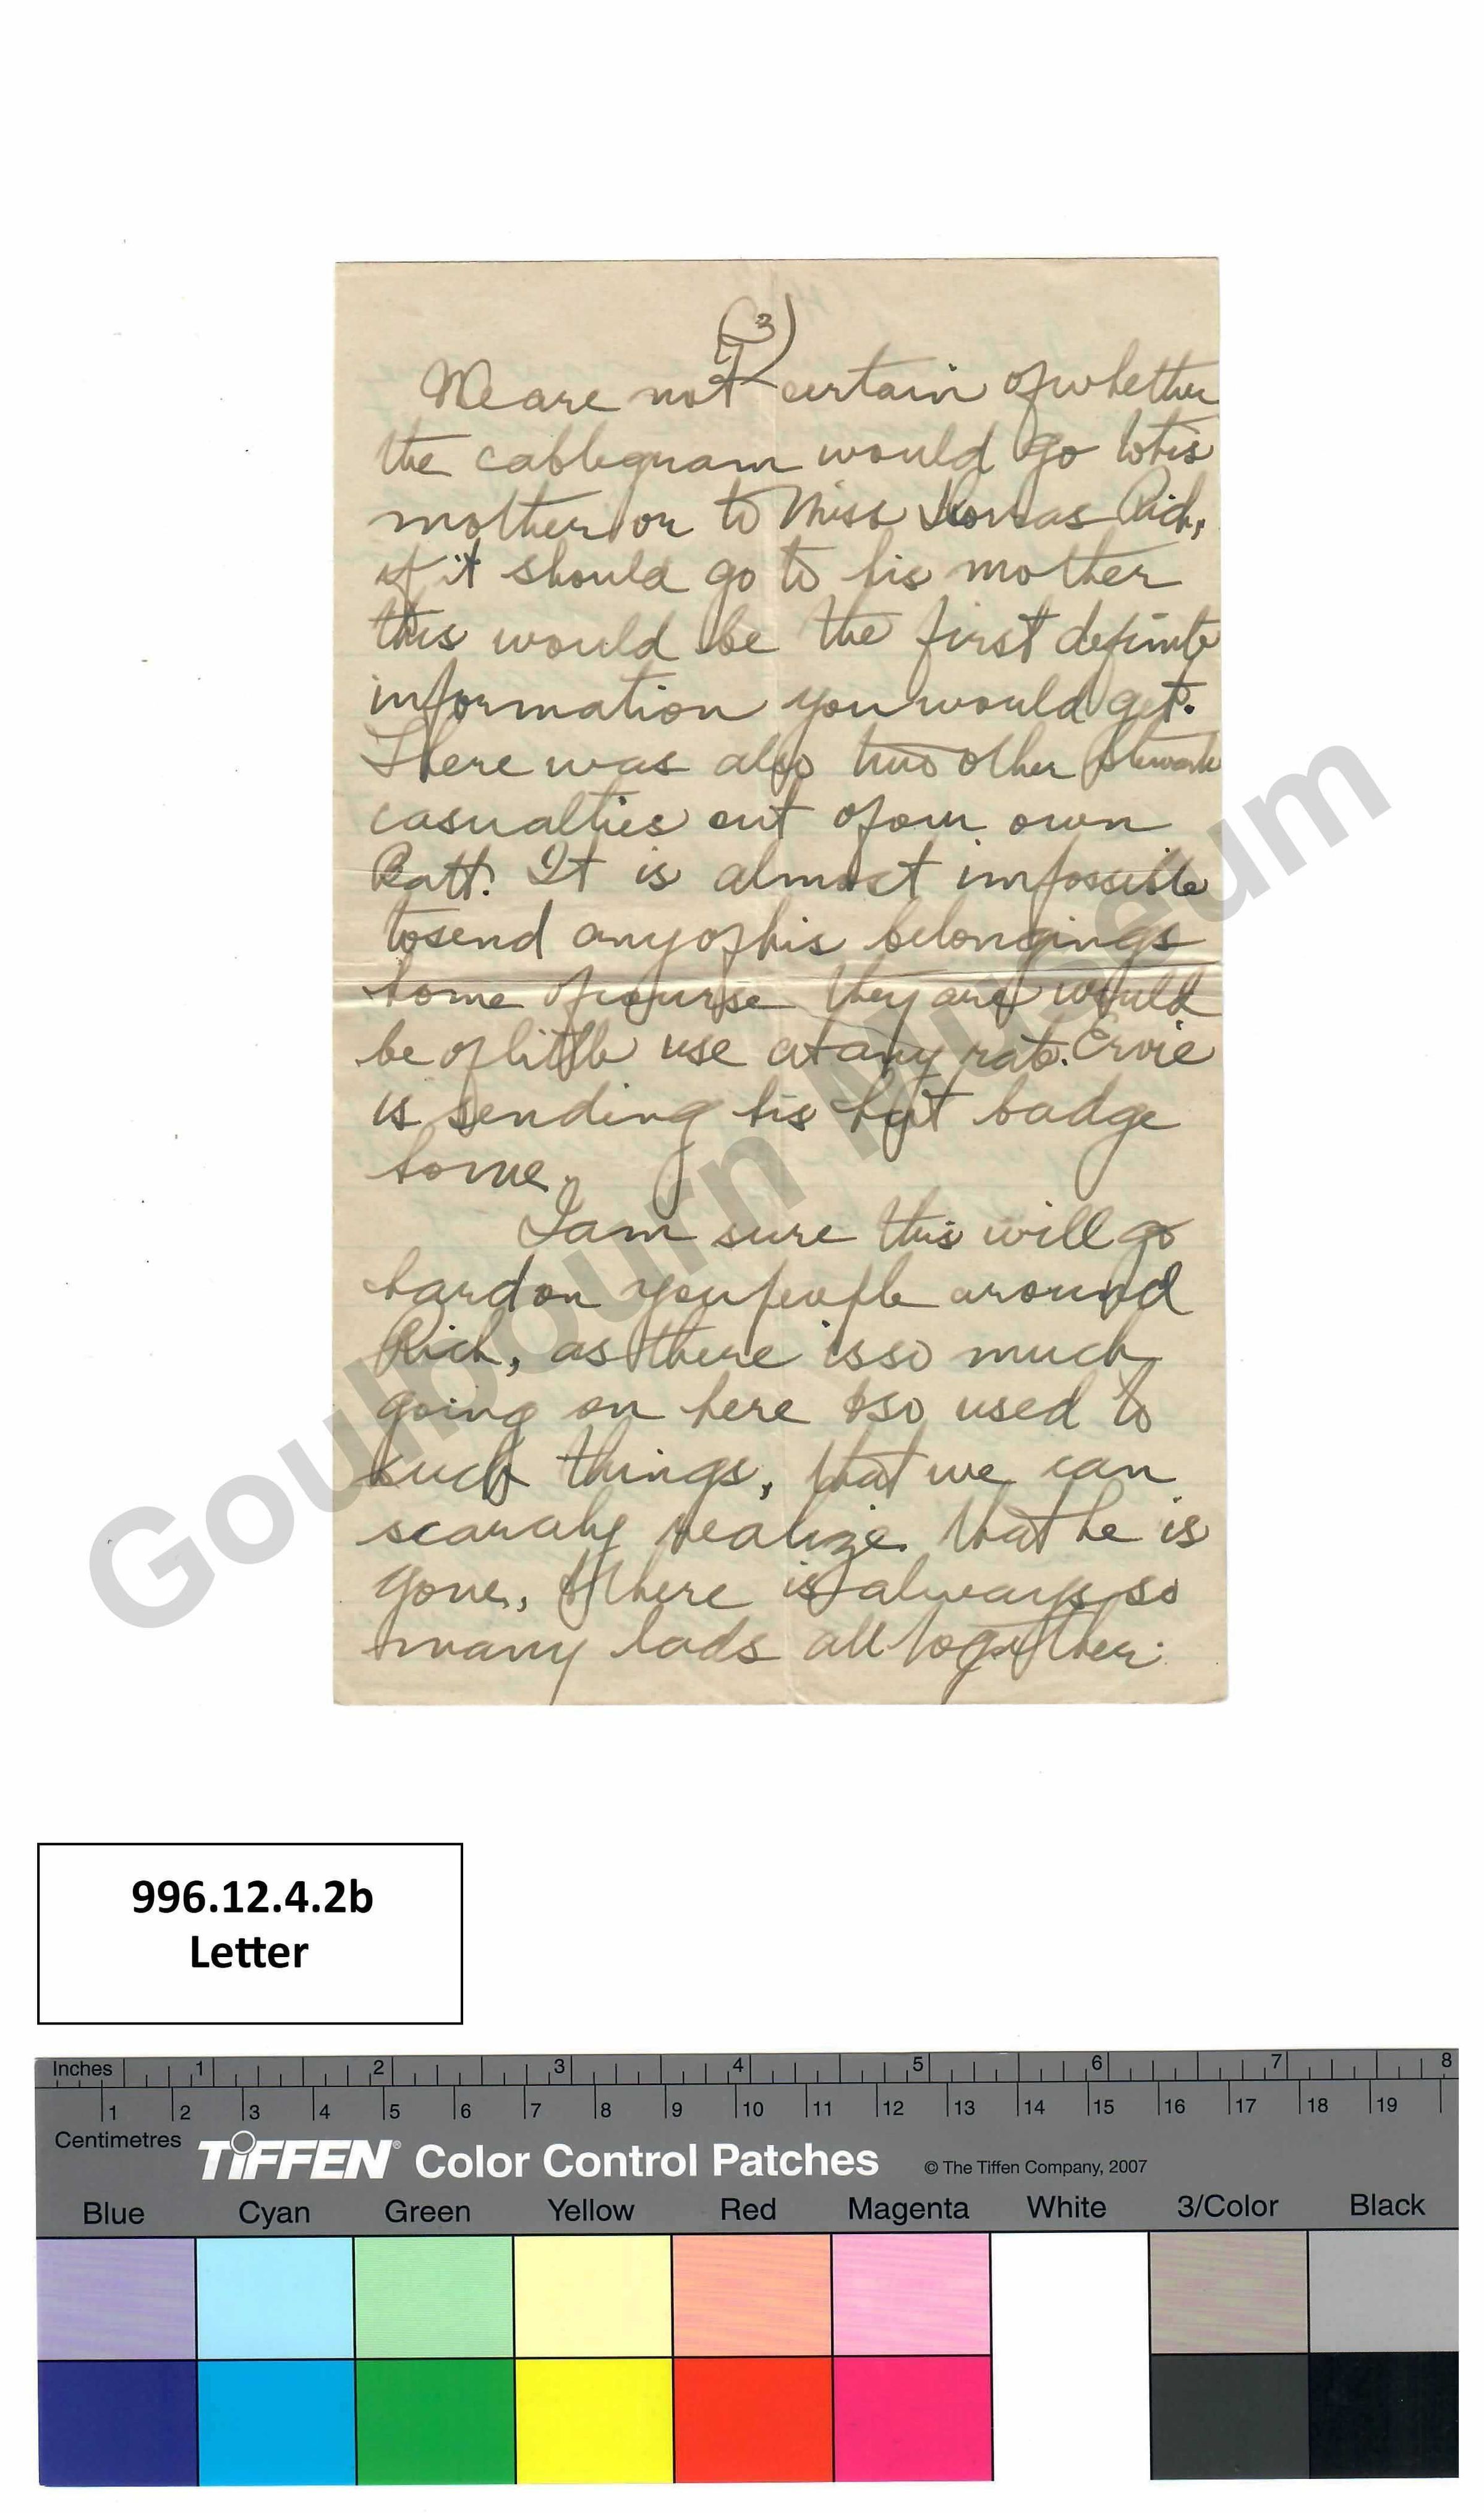 (3)
We are not certain of whether
the cablegram would go to his
mother or to Miss Thomas Rich,
if it should go to his mother
this would be the first definite
information you would get.
There was also two other
casualties out of our own
Batt. It is almost impossible
to send any of his belongings
home of course they are would
be of little use at any rate. Ervie
is sending his hat badge
home.
I am sure this will go
hard on you people around
Rich, as there is so much
going on here & so used to
such things, that we can
scarcely realize that he is
gone, & there is always so
many lads all together.
Goulbourn Museum
996.12.4.2b
Letter
Inches 1 2 3 4 5 6 7 8
1 2 3 4 5 6 7 8 9 10 11 12 13 14 15 16 17 18 19
Centimetres
TIFFEN® Color Control Patches © The Tiffen Company, 2007
Blue Cyan Green Yellow Red Magenta White 3/Color Black